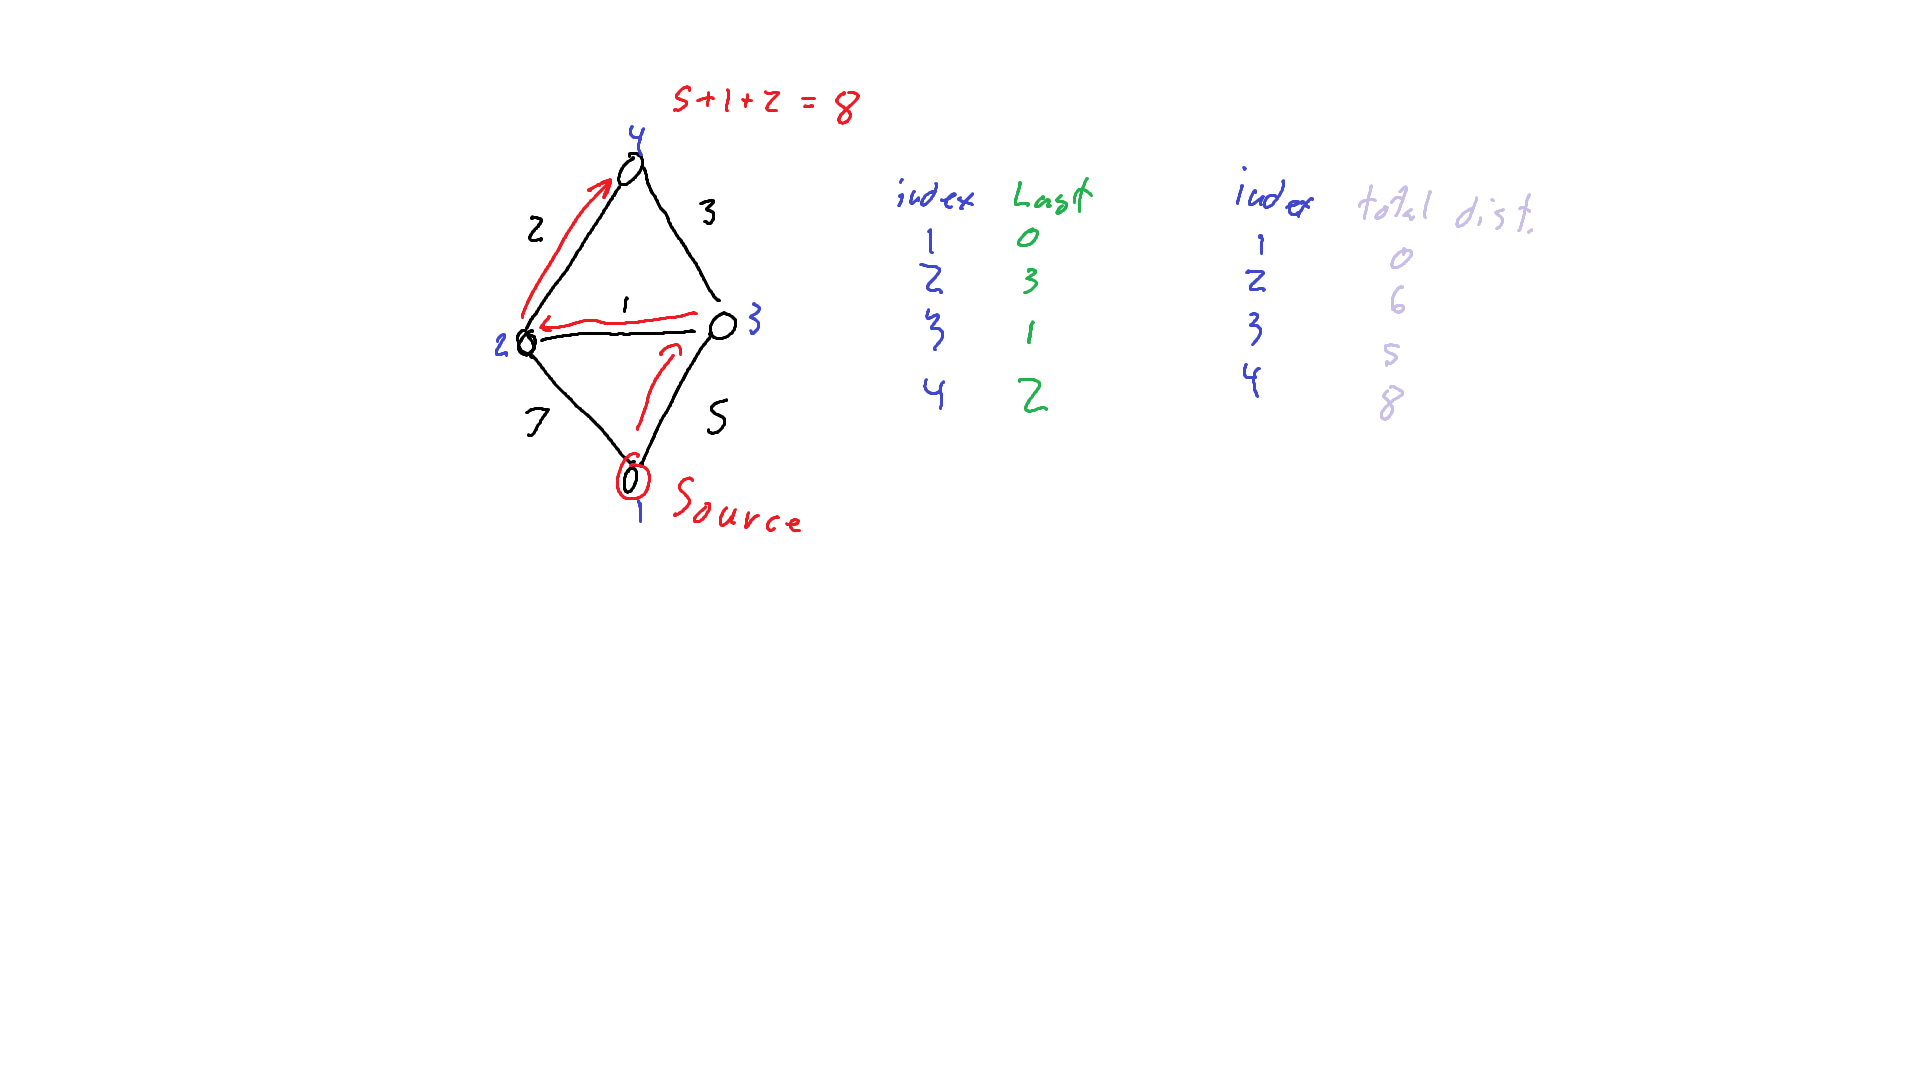 5+1+2 = 8
4
2
3
1
2
3
7
5
1
Source
index Last
1 0
2 3
3 1
4 2
index total dist.
1 0
2 6
3 5
4 8